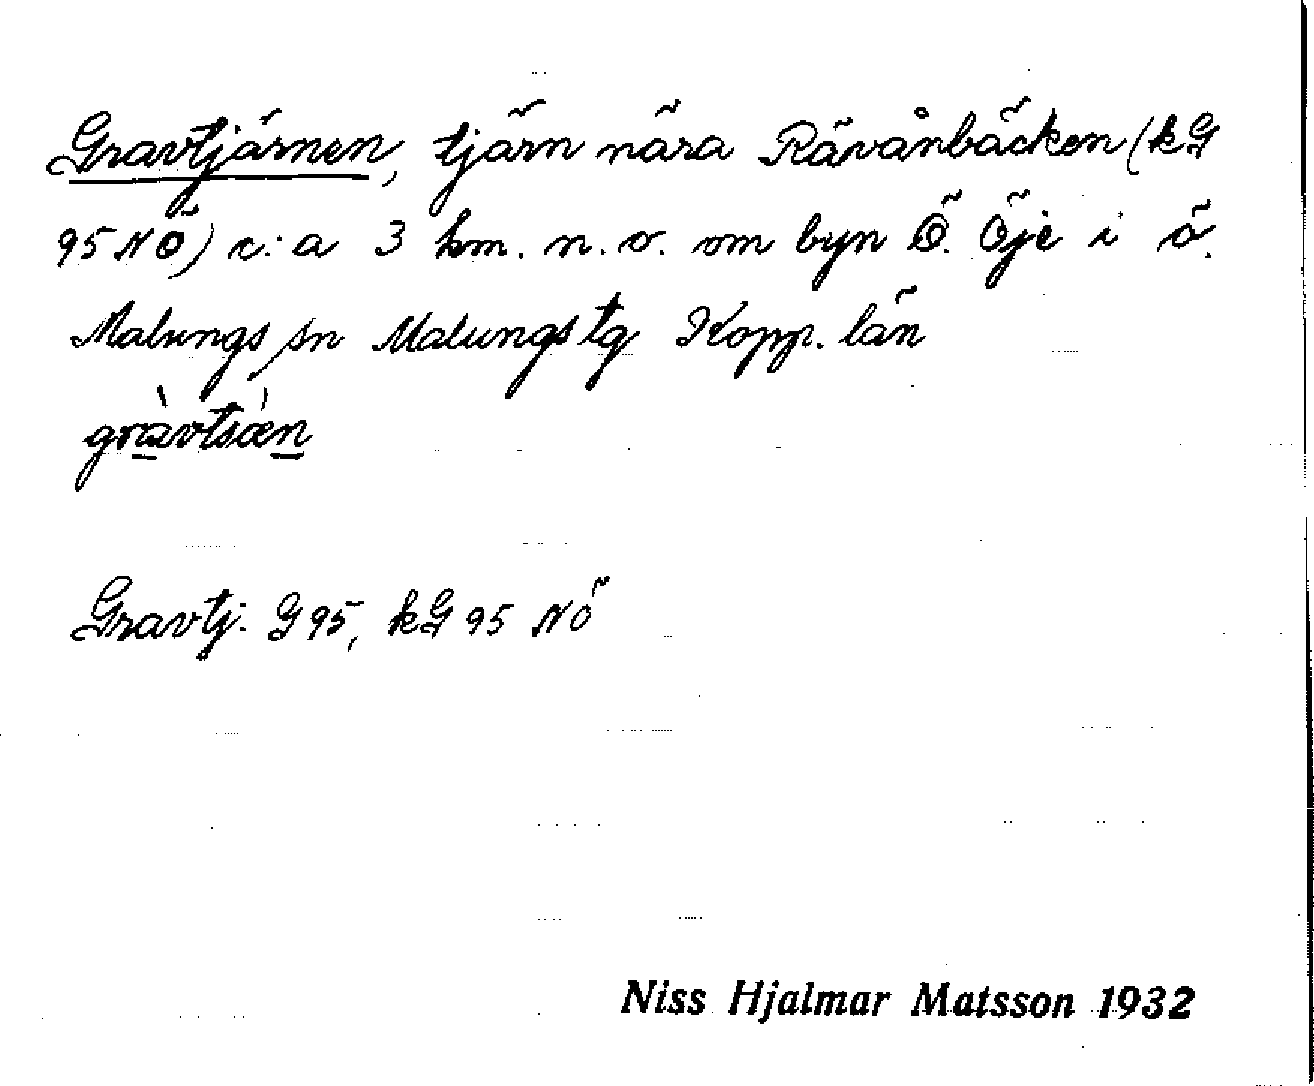 Gravtjärnen, tjärn nära Rävånbäcken (kG
95 NÖ) c:a 3 km. n.o. om byn Ö. Öje i ö.
Malungs sn Malungs tg Kopp. län
gràvtsæ̀n
Gravtj. G 95, kG 95 NÖ
Niss Hjalmar Matsson 1932